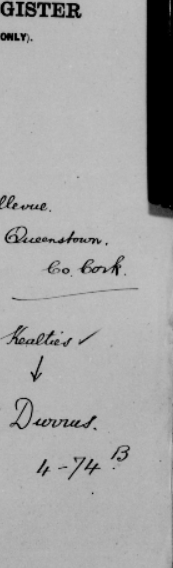 GISTER
ONLY).
llevue.
Queenstown.
Co. Cork.
Kealties ✓
↓
Durrus.
4-74 B